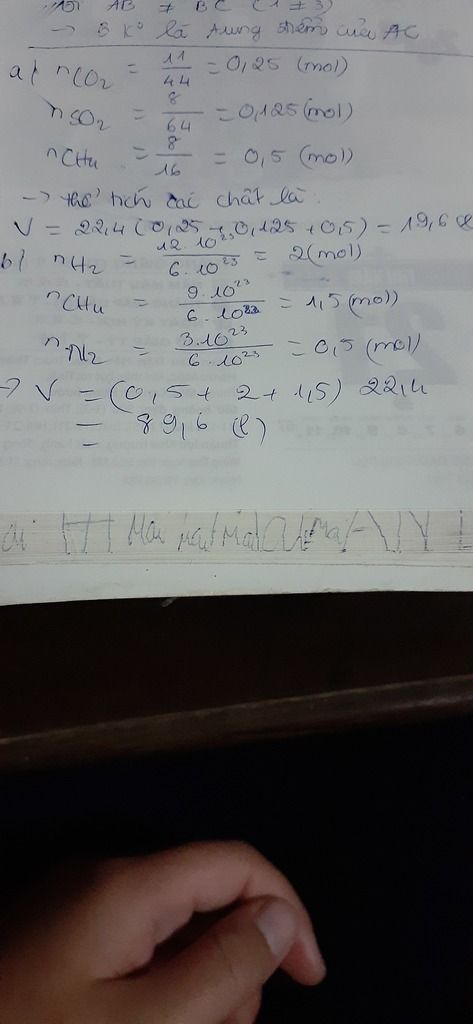 AB ≠ BC (1 ≠ 3)
→ B ko là trung điểm của AC
a) nCO2 = 11/44 = 0,25 (mol)
nSO2 = 8/64 = 0,125 (mol)
nCH4 = 8/16 = 0,5 (mol)
→ thể tích các chất là:
V = 22,4 (0,25 + 0,125 + 0,5) = 19,6 (l
b) nH2 = 12.10^23/6.10^23 = 2 (mol)
nCH4 = 9.10^23/6.10^23 = 1,5 (mol)
nN2 = 3.10^23/6.10^23 = 0,5 (mol)
→ V = (0,5 + 2 + 1,5) 22,4
= 89,6 (l)